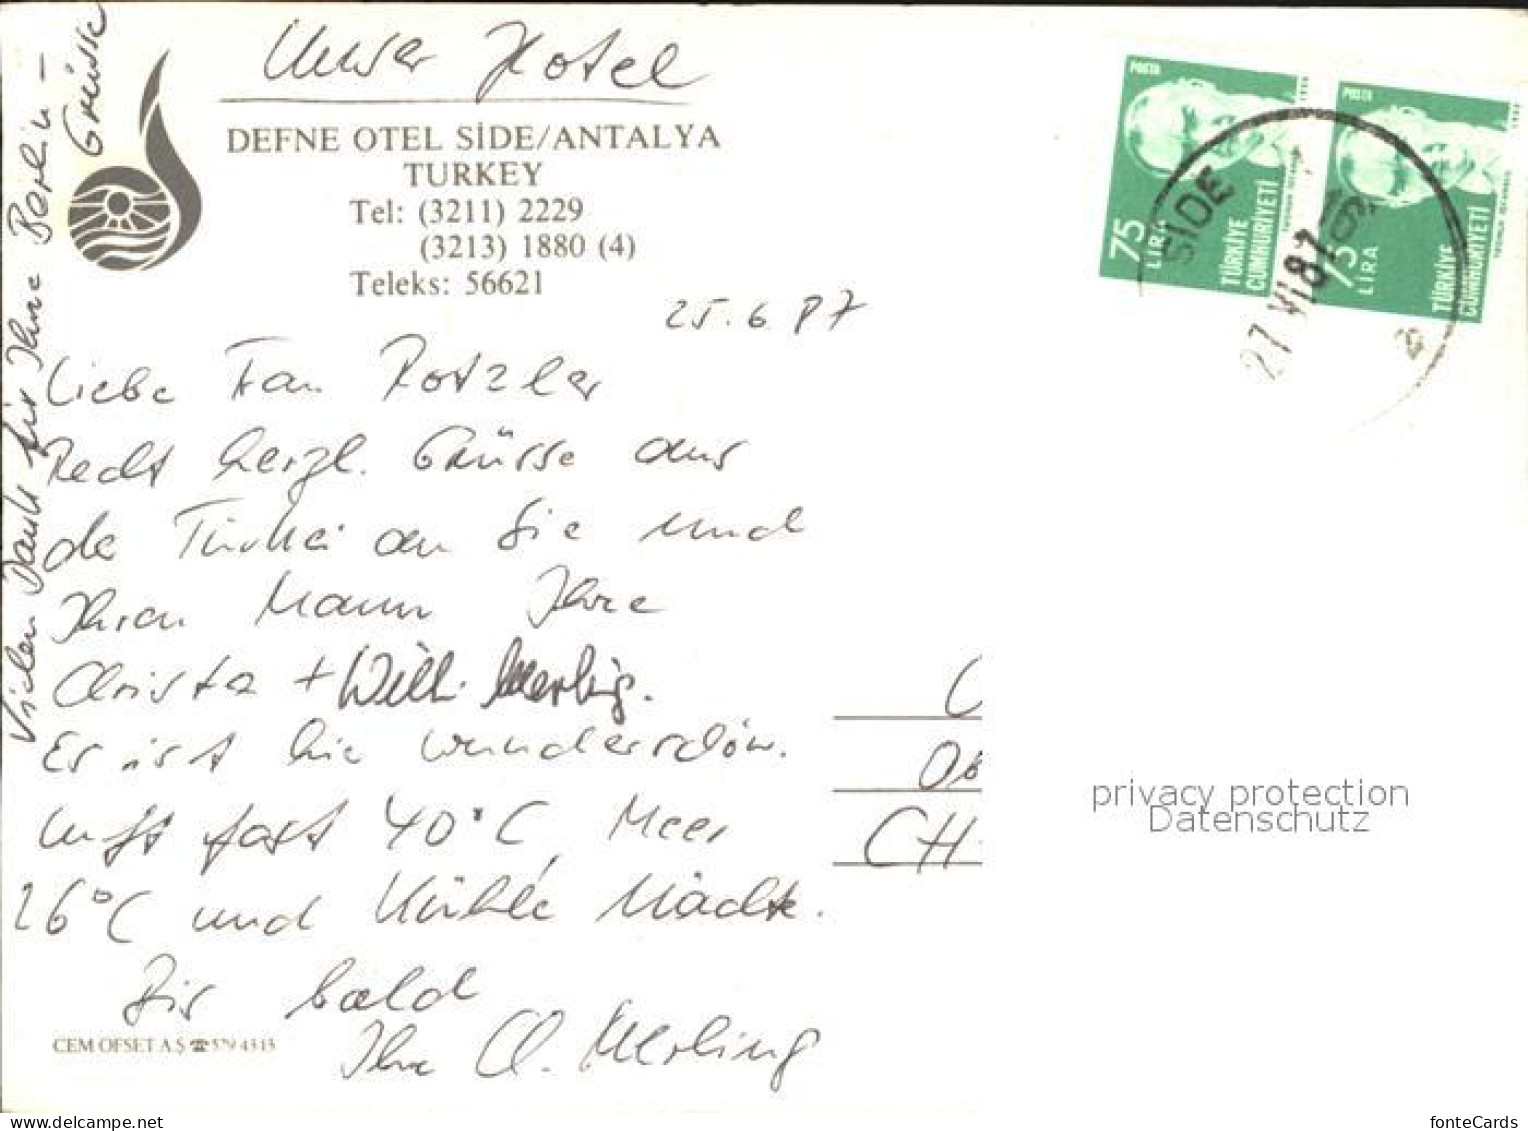 Unser Hotel
DEFNE OTEL SİDE/ANTALYA
TURKEY
Tel: (3211) 2229
(3213) 1880 (4)
Teleks: 56621
25.6.87
Liebe Frau Rotzler
Recht herzl. Grüsse aus
der Türkei an Sie und
Ihren Mann Ihre
Christa + Willi Merling.
Es ist hier wunderschön.
Luft fast 40°C, Meer
26°C und kühle Nächte.
Bis bald
Ihre C. Merling
Vielen Dank für Ihre Berlin-
Grüsse
CEM OFSET A.Ş ☎ 579 43 13
POSTA
75
LIRA
TÜRKİYE
CUMHURİYETİ
POSTA
75
LIRA
TÜRKİYE
CUMHURİYETİ
SIDE
27 VI 87
Ob
CH-
privacy protection
Datenschutz
www.delcampe.net
fonteCards